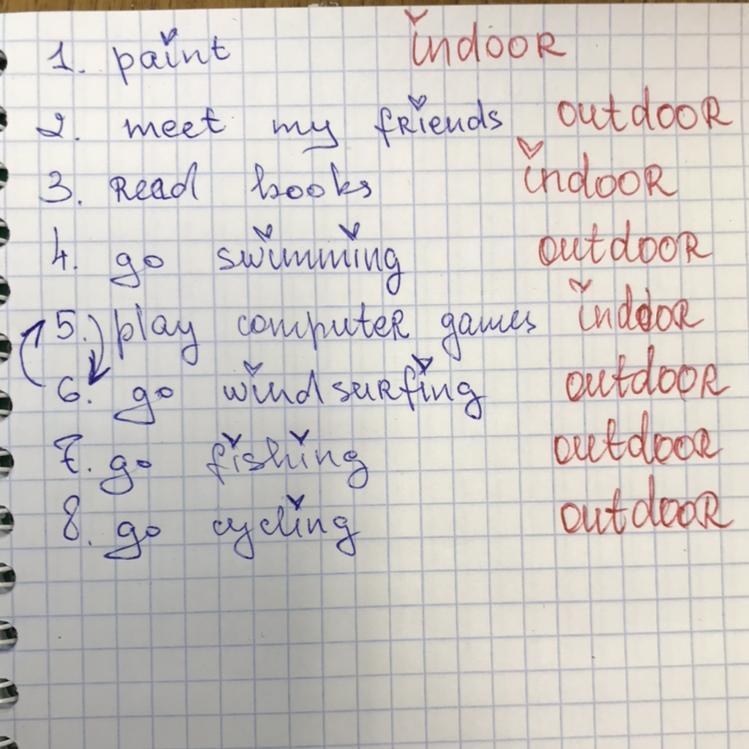 1. paint indoor
2. meet my friends outdoor
3. Read books indoor
4. go swimming outdoor
5. play computer games indoor
6. go windsurfing outdoor
7. go fishing outdoor
8. go cycling outdoor